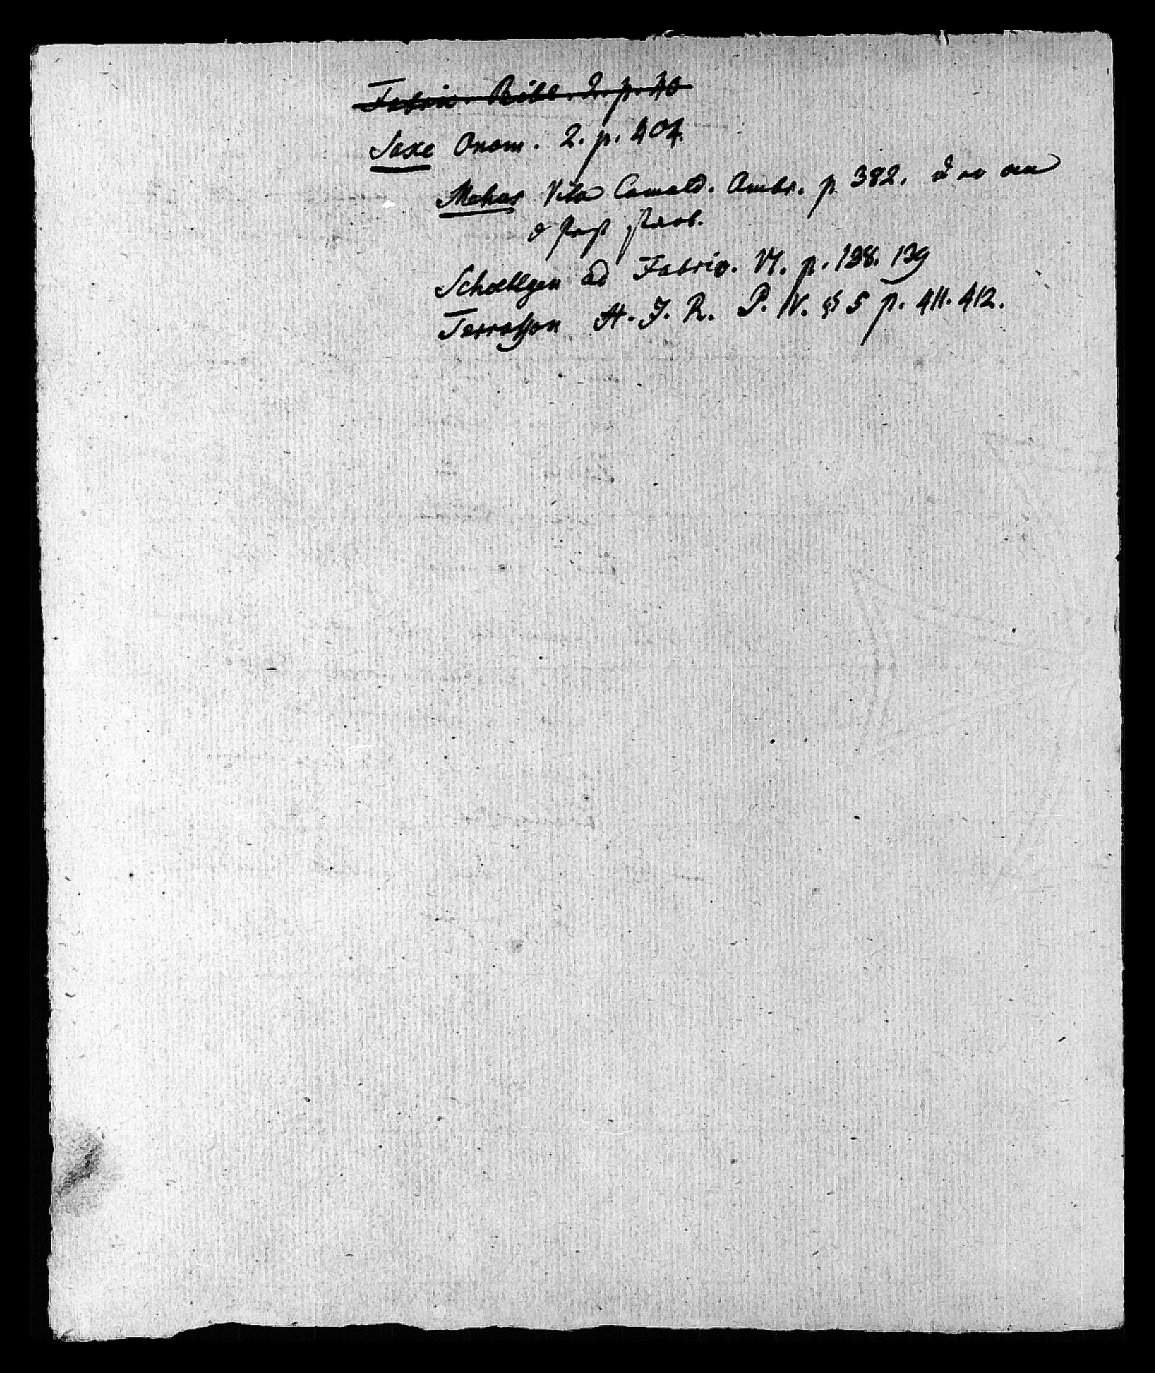 Fabric. Bibl. 2. p. 40
Saxe Onom. 2. p. 404
Mehus Vita Camald. Ambr. p 382.
Schoettgen ad Fabric. VI. p. 138. 139
Terrasson H. J. R. P. IV. § 5 p. 411. 412.